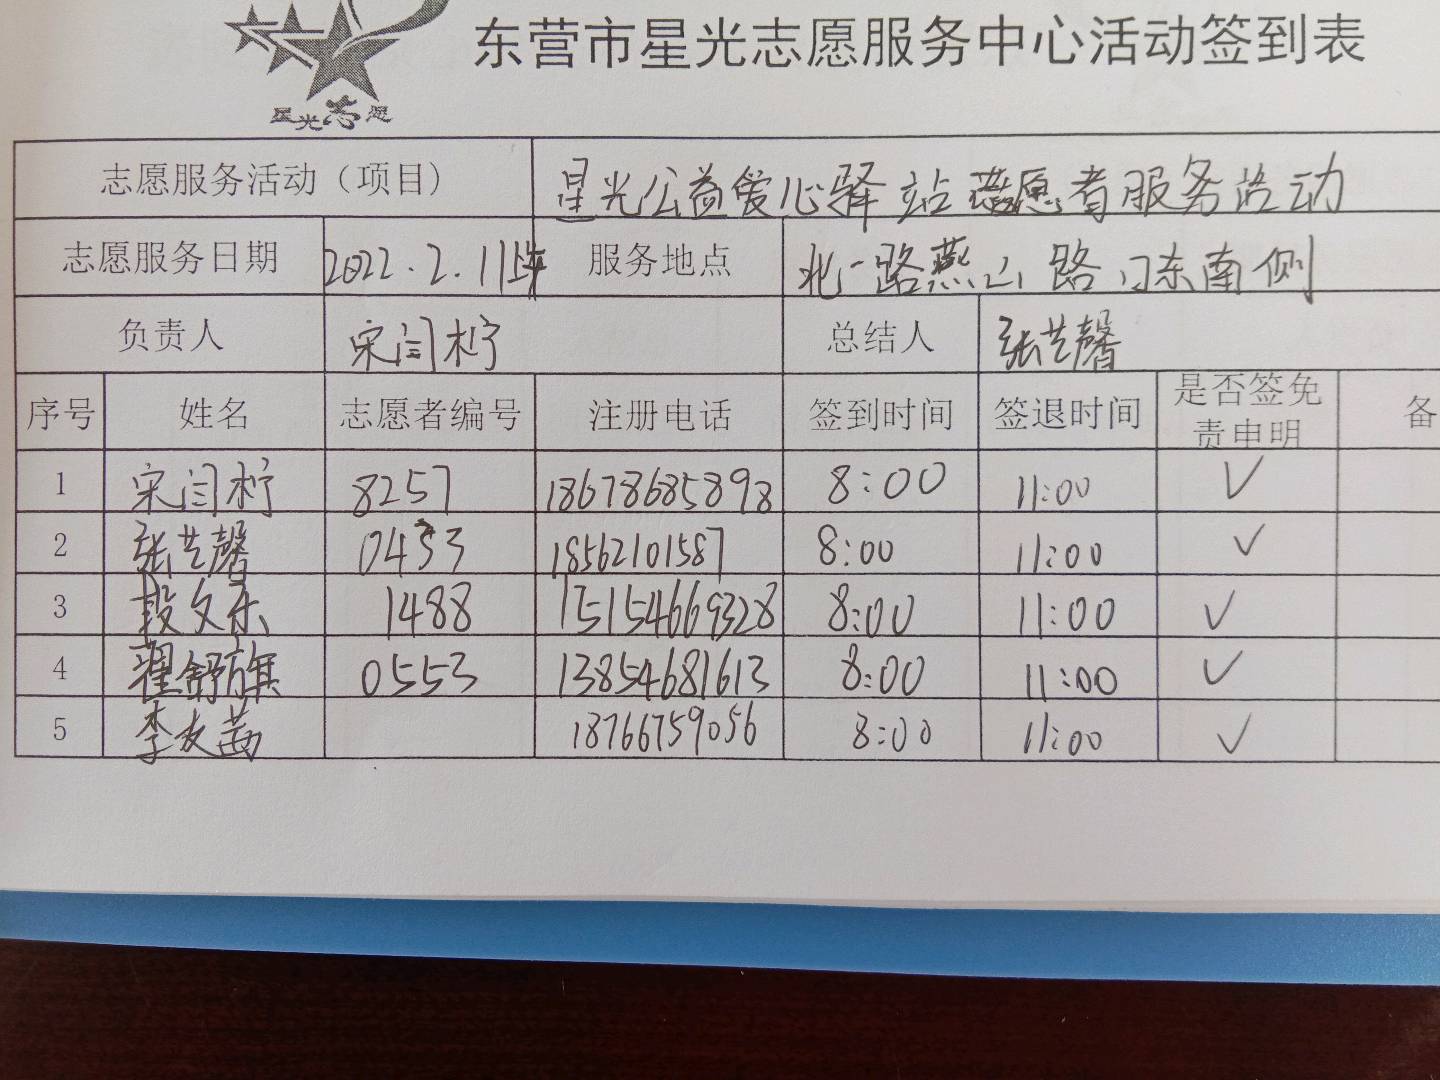 东营市星光志愿服务中心活动签到表
星光志愿
志愿服务活动（项目） 星光公益爱心驿站志愿者服务活动
志愿服务日期 2022.2.11上午 服务地点 北一路燕山路口东南侧
负责人 宋闫柠 总结人 张艺馨
序号 姓名 志愿者编号 注册电话 签到时间 签退时间 是否签免责申明 备
1 宋闫柠 8257 18678685898 8:00 11:00 ✓
2 张艺馨 0433 18562101587 8:00 11:00 ✓
3 段文乐 1488 15154669328 8:00 11:00 ✓
4 翟舒旗 0553 13854681613 8:00 11:00 ✓
5 李友茜 18766759056 8:00 11:00 ✓